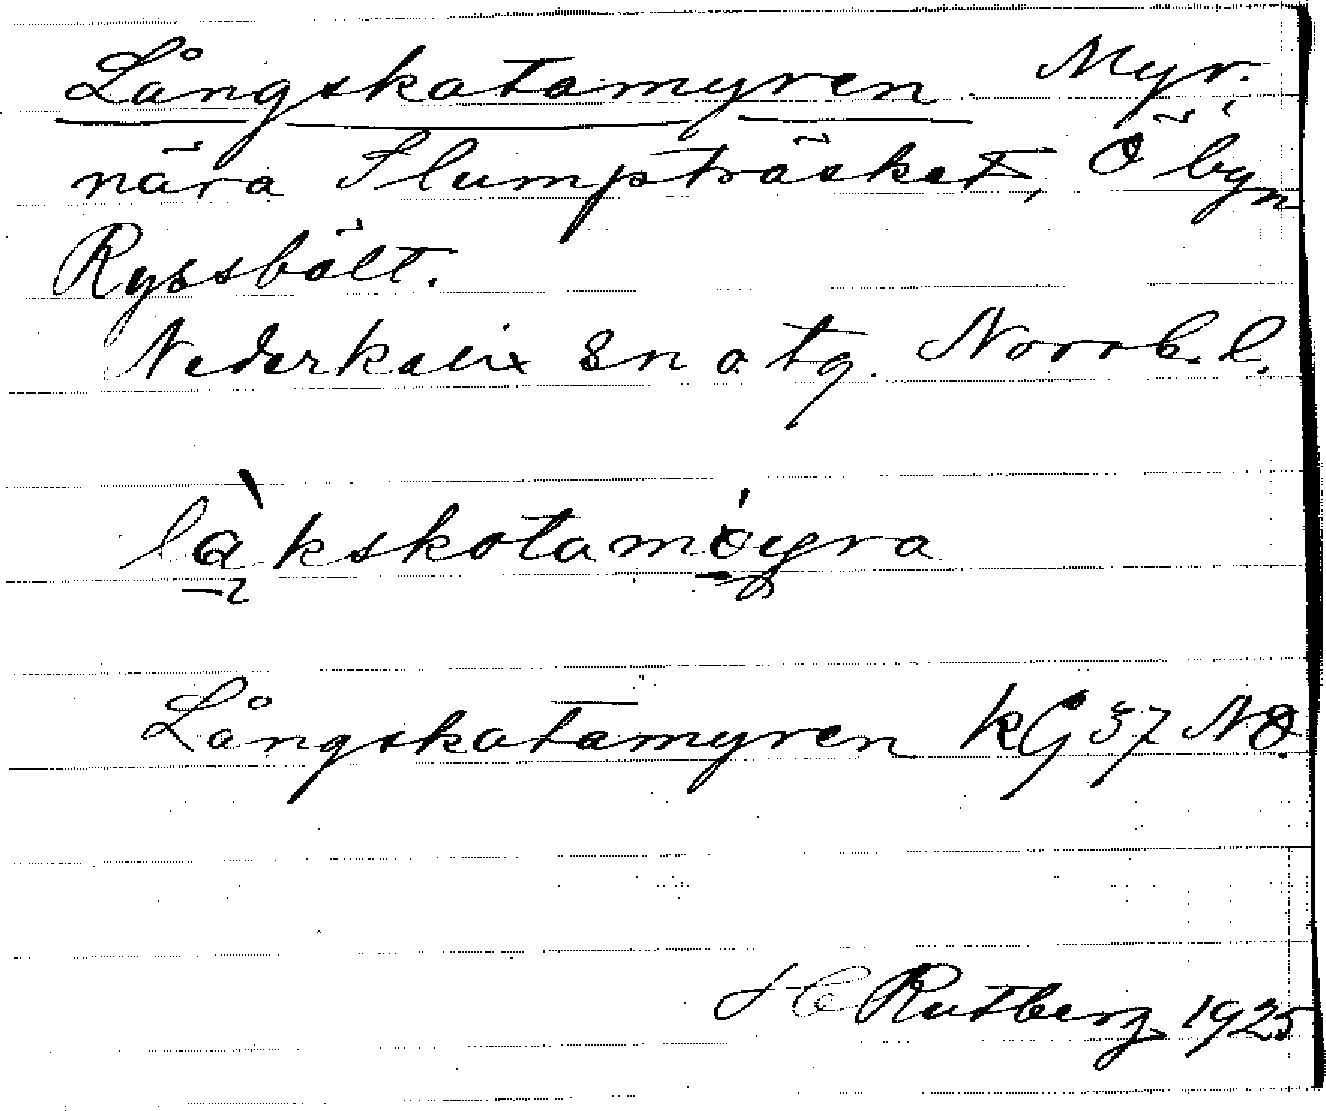 Långskatamyren Myr.
nära Slumpträsket, Ö byn
Ryssbält.
Nederkalix sn o tg. Norrb. l.
làkskotamöyra
Långskatamyren kG 37 NO.
H C Rutberg 1925